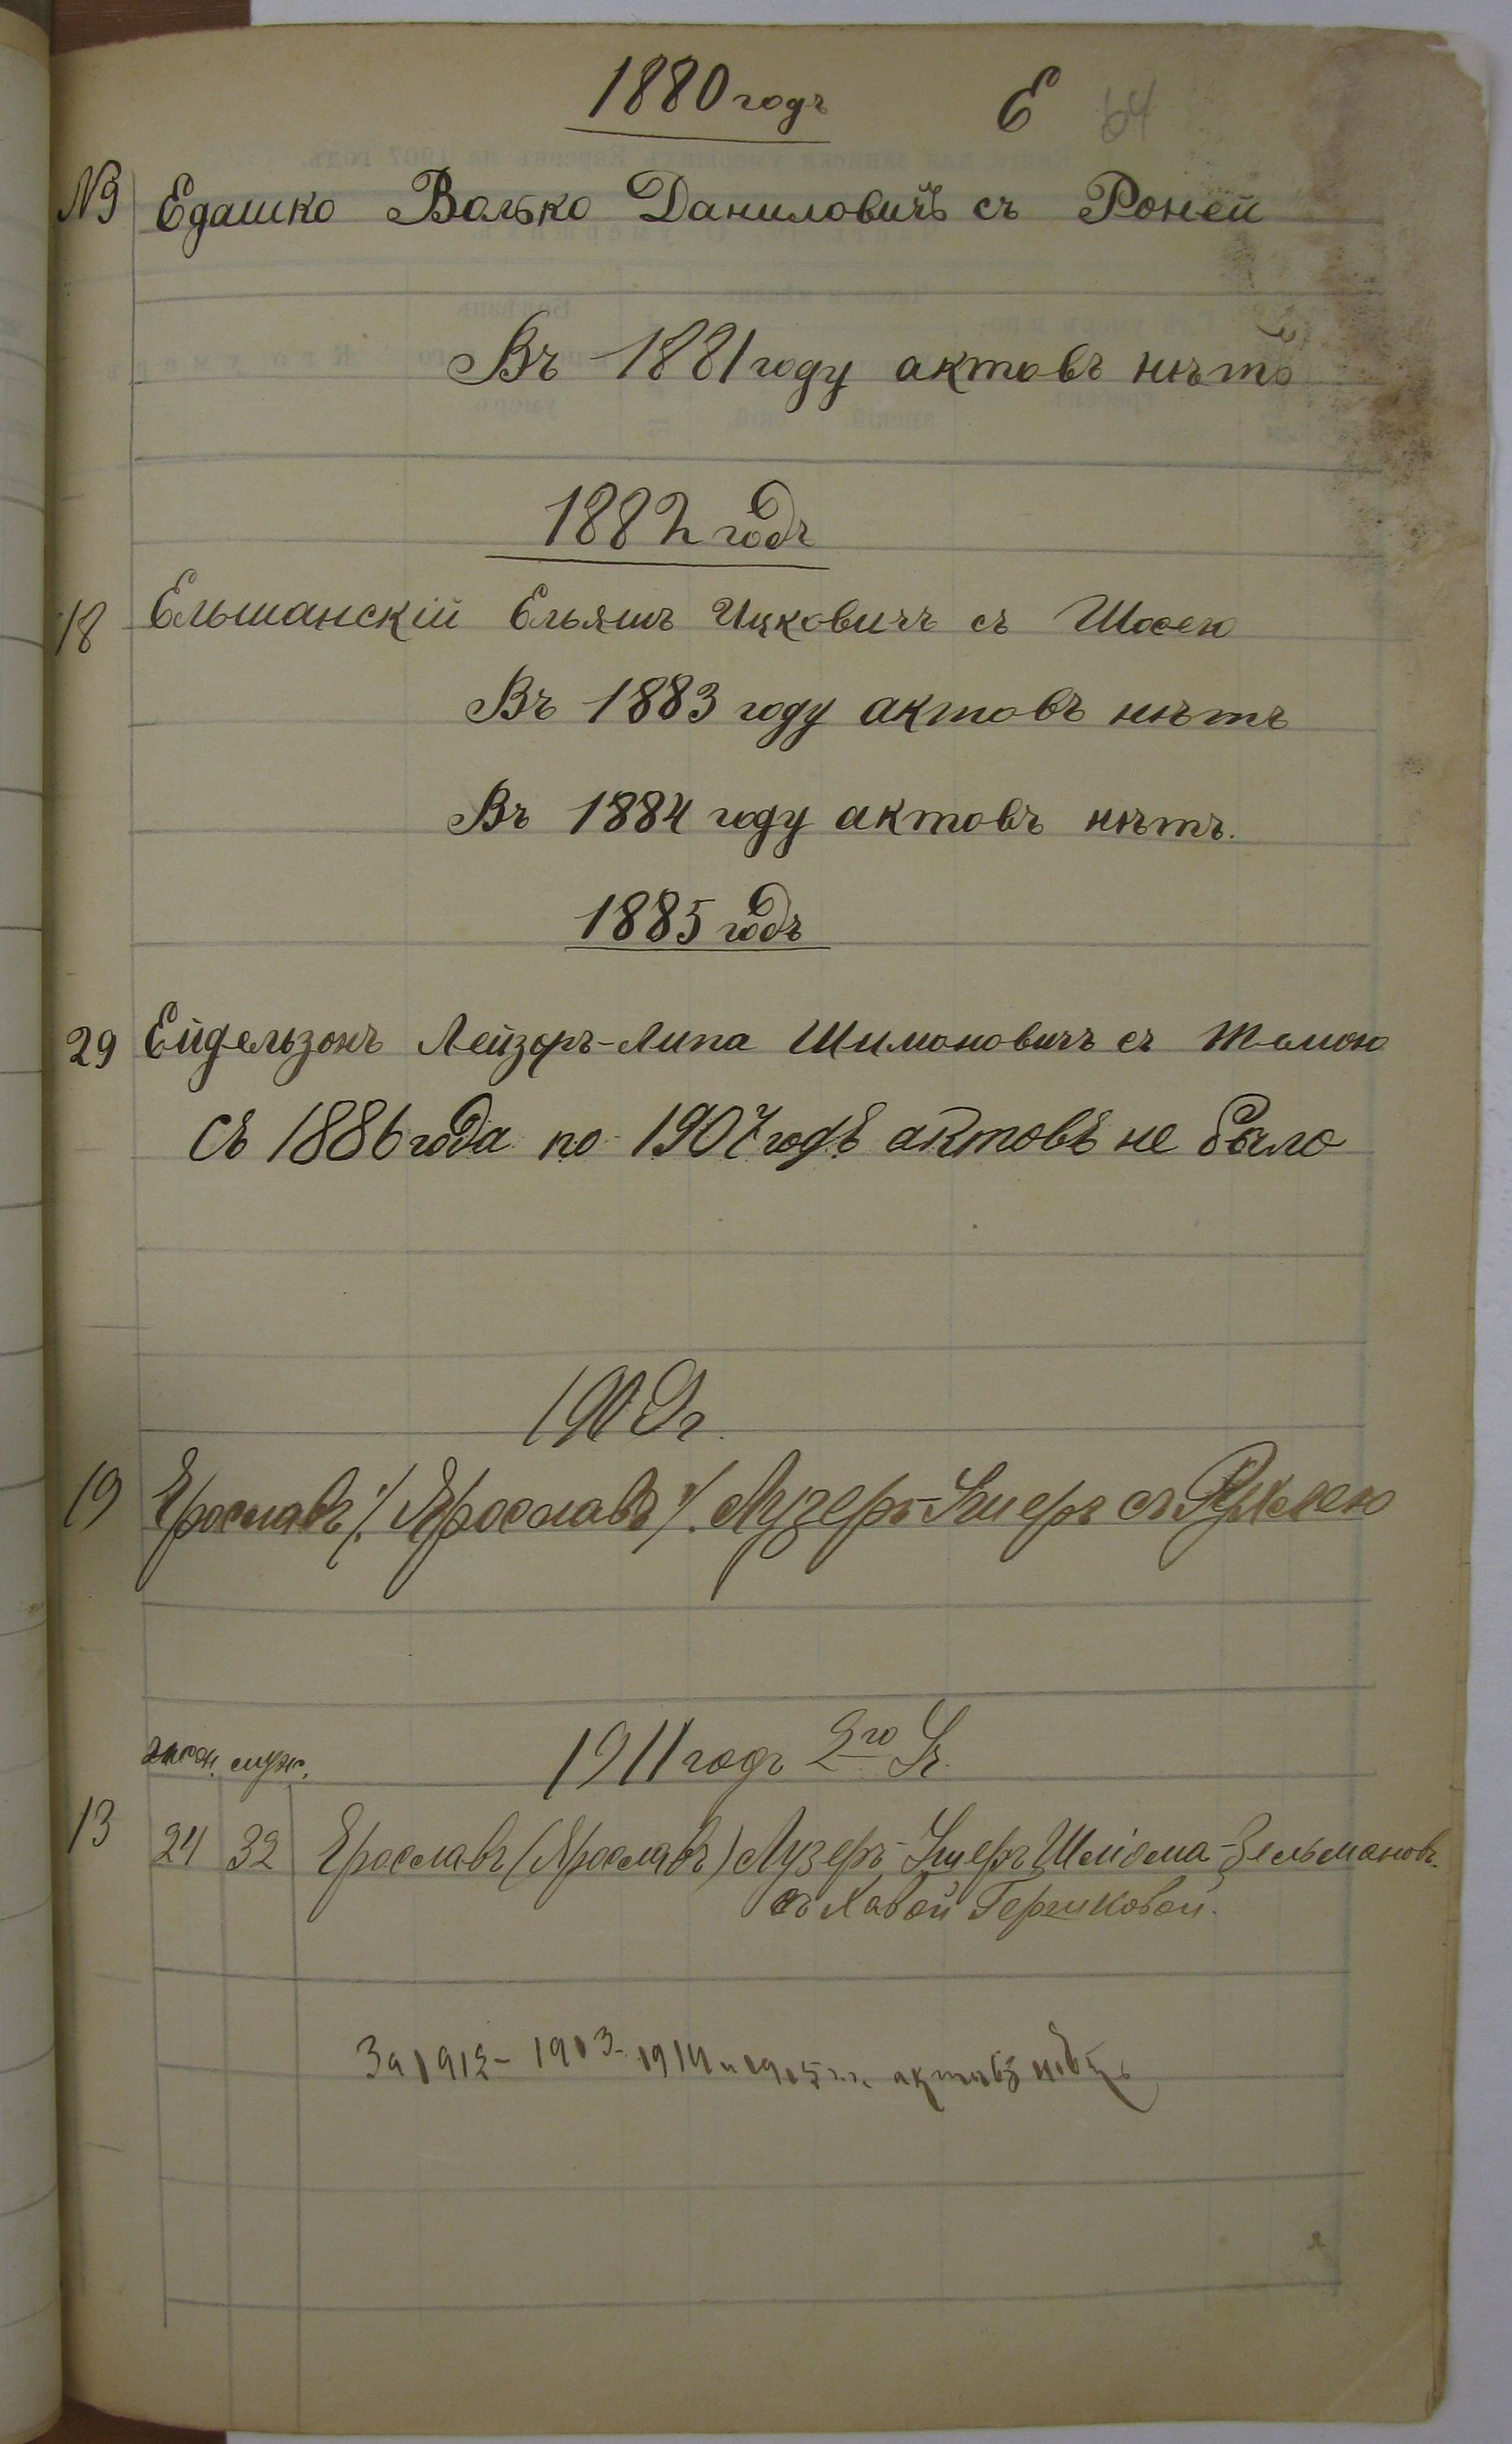 1880 годъ Е 64
№9 Едашко Волько Даниловичъ съ Роней
Въ 1881 году актовъ нѣтъ
1882 годъ
18 Ельшанскій Ельяшъ Ицковичъ съ
Въ 1883 году актовъ нѣтъ
Въ 1884 году актовъ нѣтъ.
1885 годъ
29 Ейдельзонъ Лейзоръ-Липа Шимоновичъ съ
Съ 1886 года по 1907 годъ актовъ не было
1909 г.
19 Ерославъ /:Ярославъ:/ Лузеръ-Ушеръ съ
1911 годъ 2го
13 24 32 Ерославъ (Ярославъ) Лузеръ-Ушеръ Шліома-Зельмановъ.
съ Хавой Гершковой.
За 1912- 1913- 1914 и 1915 г.г. актовъ нѣтъ